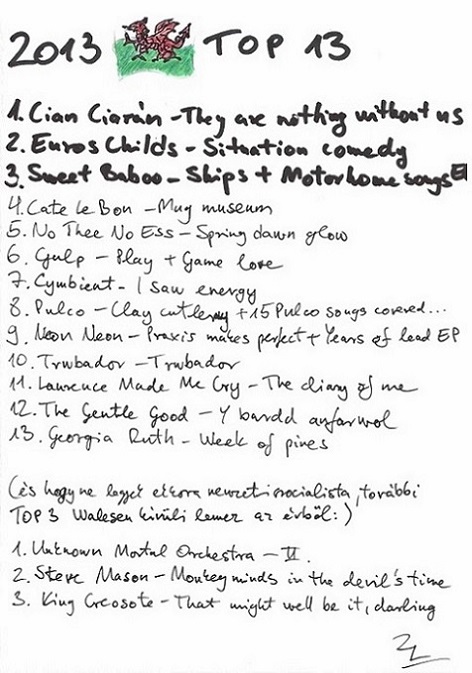 2013 TOP 13
1. Cian Ciarán - They are nothing without us
2. Euros Childs - Situation comedy
3. Sweet Baboo - Ships + Motorhome songs EP
4. Cate le Bon - Mug museum
5. No Thee No Ess - Spring dawn glow
6. Gulp - Play + Game love
7. Cymbient - I saw energy
8. Pulco - Clay cutlery + 15 Pulco songs covered...
9. Neon Neon - Praxis makes perfect + Years of lead EP
10. Trwbador - Trwbador
11. Laurence Made Me Cry - The diary of me
12. The Gentle Good - Y bardd anfarwol
13. Georgia Ruth - Week of pines
(és hogy ne legyek ekkora nemzeti szocialista, további
TOP 3 Walesen kívüli lemez az évből:)
1. Unknown Mortal Orchestra - II.
2. Steve Mason - Monkey minds in the devil's time
3. King Creosote - That might well be it, darling